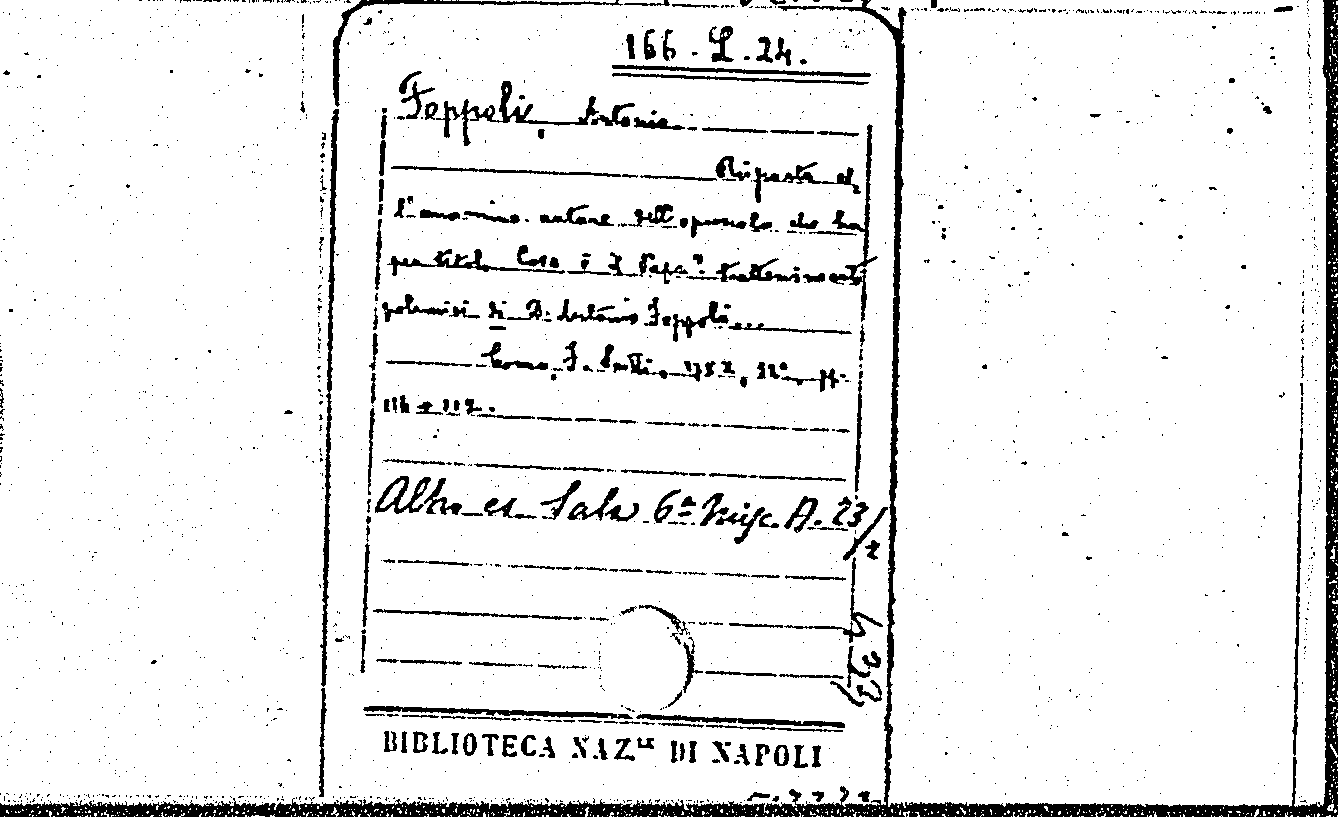 166 . L . 24.
Feppoli, Antonio
Risposta al
l'anonimo autore dell'opuscolo che ha
per titolo Cosa è il Papa? trattenimenti
polemici di D. Antonio Feppoli...
114 + 112.
Altra es. Sala 6ª Misc. A. 23/2
BIBLIOTECA NAZ.LE DI NAPOLI